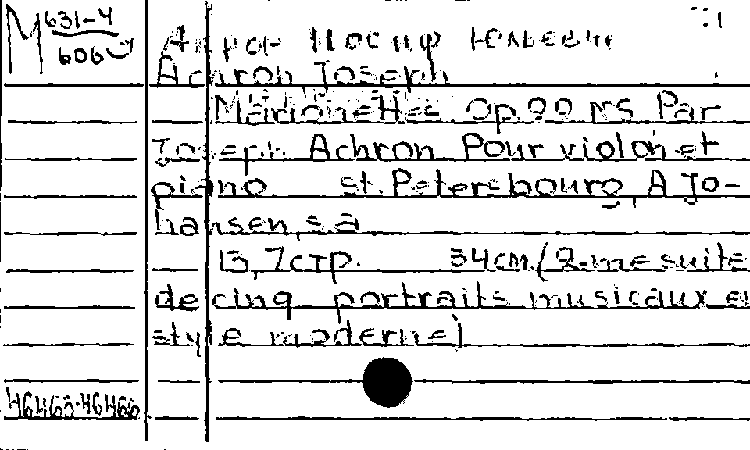 М 631-4
606
Ахрон Иосиф Юльевич
Achron, Joseph
Marionettes Op. 22 N5 Par
Joseph Achron Pour violon et
piano st. Petersbourg, A Jo-
hansen, s.a
13, 7 стр. 34 см. (2-me suite
de cinq portraits musicaux en
style moderne)
46465-46466